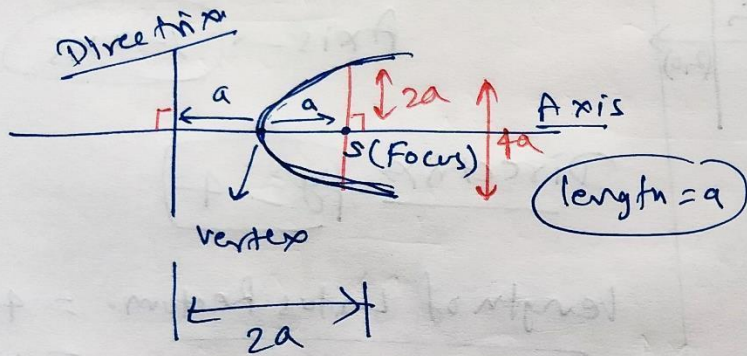 Directrix
a
a
2a
Axis
S(Focus)
4a
length = a
vertex
2a